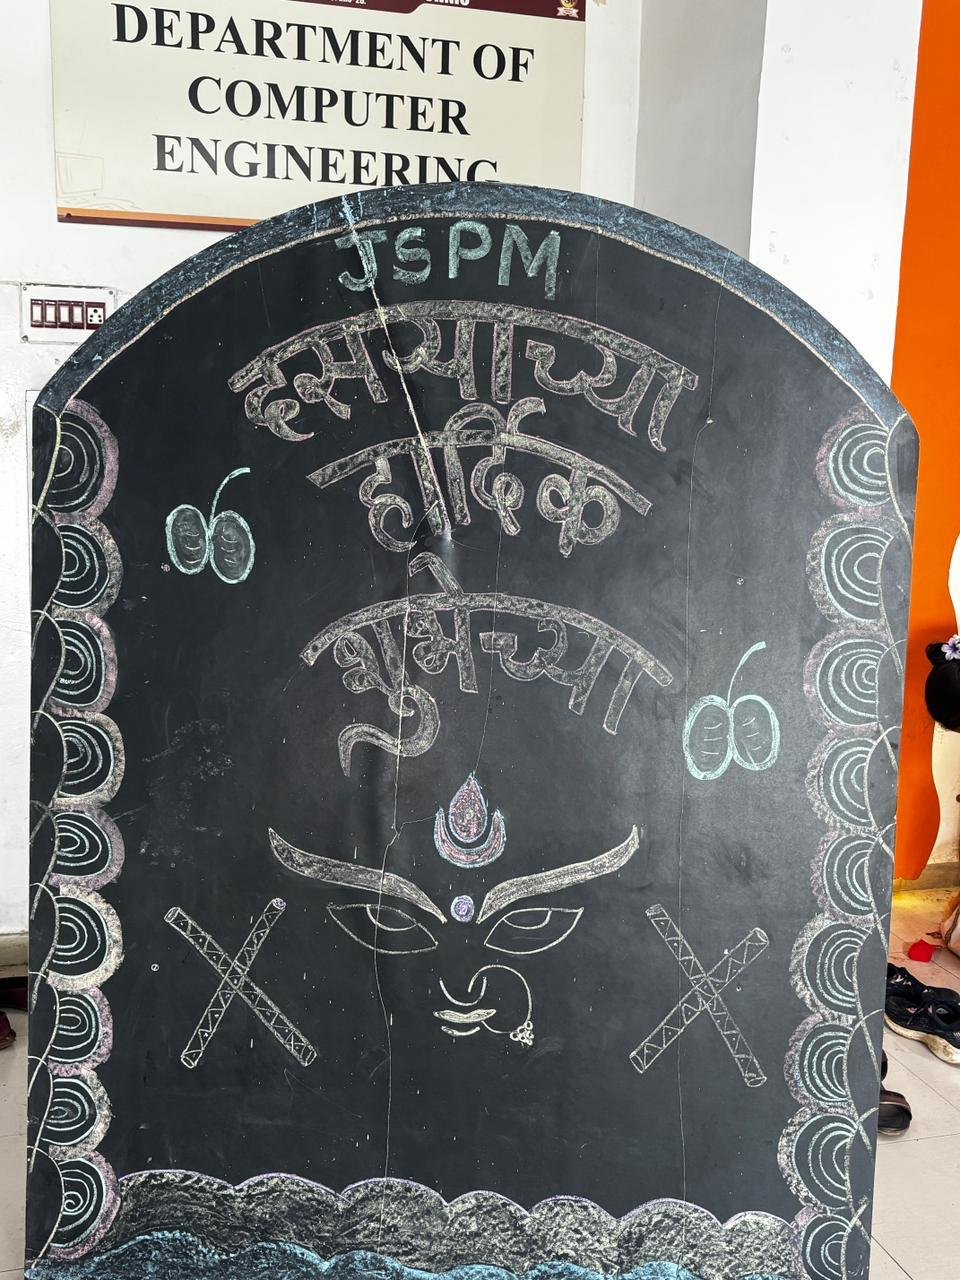 DEPARTMENT OF
COMPUTER
ENGINEERING
JSPM
दसऱ्याच्या
हार्दिक
शुभेच्या